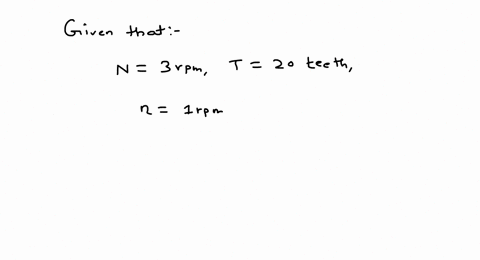 Given that:-
N = 3 rpm, T = 20 teeth,
n = 1 rpm